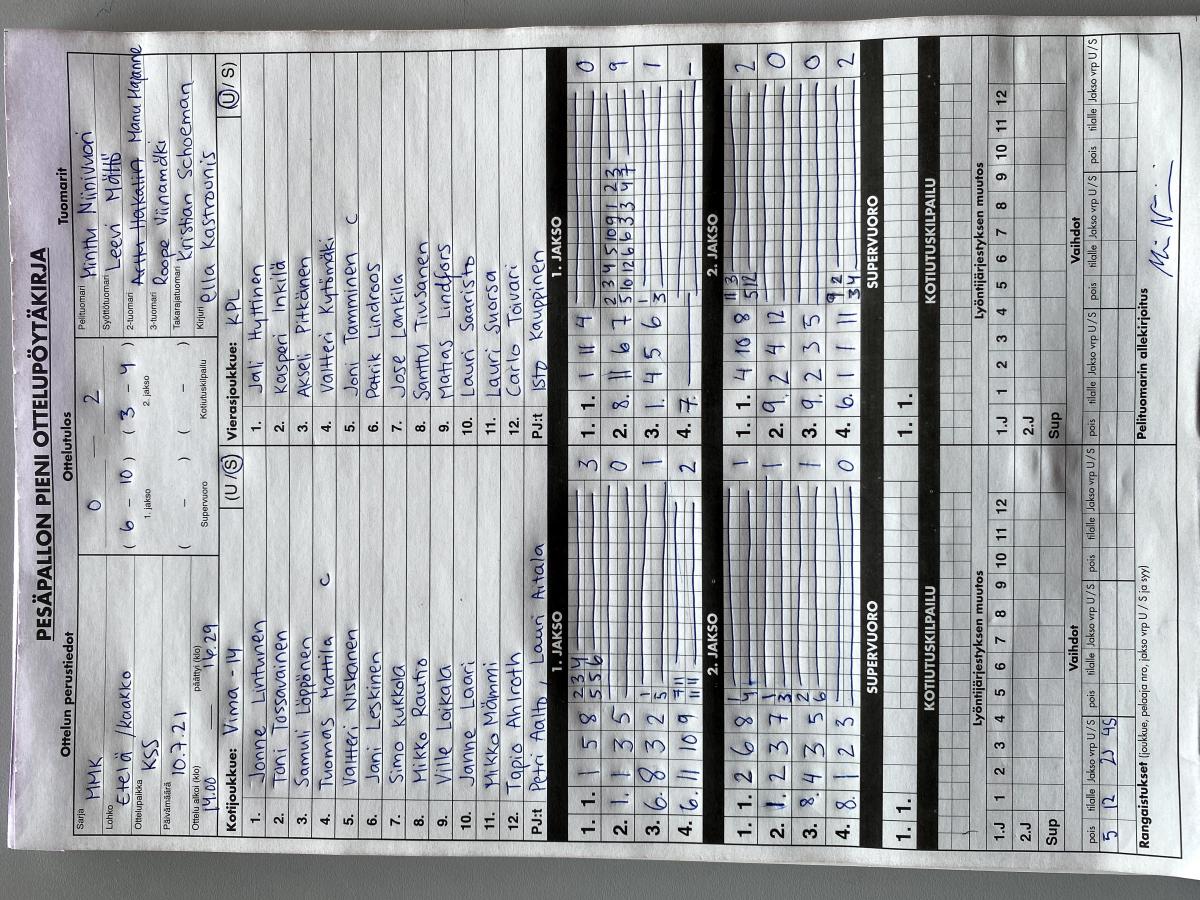 PESÄPALLON PIENI OTTELUPÖYTÄKIRJA
Ottelun perustiedot
Sarja
MMK
Lohko
Etelä /kaakko
Ottelupaikka
KSS
Päivämäärä
10.7.21
Ottelu alkoi (klo)
päättyi (klo)
14.00 — 16.29
Ottelutulos
0 — 2
( 6 - 10 ) ( 3 - 4 )
1. jakso
2. jakso
( - ) ( - )
Supervuoro
Kotiutuskilpailu
Tuomarit
Pelituomari Minttu Niinivuori
Syöttötuomari Leevi Mättö
2-tuomari Manu Hajanne
3-tuomari Roope Viinamäki
Takarajatuomari Kristian Schoeman
Kirjuri Ella Kastrounis
Kotijoukkue: Vima -14 (U / S)
1. Janne Lintunen
2. Toni Tossavainen
3. Samuli Löppönen
4. Tuomas Mattila C
5. Valtteri Niskanen
6. Jani Leskinen
7. Simo Kukkola
8. Mikko Rauto
9. Ville Laikala
10. Janne Laari
11. Mikko Mämmi
12. Tapio Ahlroth
PJ:t Petri Aalto, Lauri Aitala
Vierasjoukkue: KPL (U / S)
1. Jali Hyttinen
2. Kaspari Inkilä
3. Akseli Pitkänen
4. Valtteri Kytömäki
5. Joni Tamminen C
6. Patrik Lindroos
7. Jose Lankila
8. Santtu Tiusanen
9. Matias Lindfors
10. Lauri Saaristo
11. Lauri Suorsa
12. Carlo Toivari
PJ:t Isto Kauppinen
1. JAKSO
1. 1. 1 5 8 2 3 4 3
5 5 6
2. 1. 1 3 5 0
3. 6. 8 3 2 1 1
5
4. 6. 11 10 9 7 11 2
11 4
1. JAKSO
1. 1. 1 11 4 0
2. 8. 11 6 7 2 3 4 5 10 9 1 2 3 9
5 10 12 6 6 3 3 4 7
3. 1. 4 5 6 1 1
3
4. 7. -
2. JAKSO
1. 1. 2 6 8 1 1
4
2. 1. 2 3 7 1 1
3
3. 8. 4 3 5 2 1
6
4. 8. 1 2 3 0
2. JAKSO
1. 1. 4 10 8 11 3 2
5 12
2. 9. 2 4 12 0
3. 9. 2 3 5 0
4. 6. 1 1 11 9 2 2
3 4
SUPERVUORO
1. 1.
SUPERVUORO
1. 1.
KOTIUTUSKILPAILU
KOTIUTUSKILPAILU
Lyöntijärjestyksen muutos
1.J 1 2 3 4 5 6 7 8 9 10 11 12
2.J
Sup
Lyöntijärjestyksen muutos
1.J 1 2 3 4 5 6 7 8 9 10 11 12
2.J
Sup
Vaihdot
pois tilalle Jakso vrp U / S pois tilalle Jakso vrp U / S pois tilalle Jakso vrp U / S
5 12 2J 4S
Vaihdot
pois tilalle Jakso vrp U / S pois tilalle Jakso vrp U / S pois tilalle Jakso vrp U / S
Rangaistukset (joukkue, pelaaja nro, jakso vrp U / S ja syy)
Pelituomarin allekirjoitus